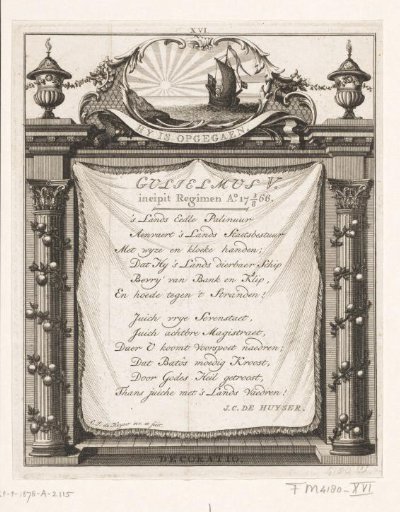 XVI
HY IS OPGEGAEN.
GULIELMUS V.
incipit Regimen Aº. 17 8/3 66.
's Lands Eedle Palinuur
Aenvaert 's Lands Staetsbestuur
Met wyze en kloeke handen;
Dat Hy 's Lands dierbaer Schip
Bevry' van Bank en Klip,
En hoede tegen 't Stranden!
Juich vrye Seevenstaet,
Juich achtbre Magistraet,
Daer U koomt Voorspoet naedren;
Dat Batôs moedig Kroost,
Door Godes Heil getroost,
Thans juiche met 's Lands Vaedren!
J. C. DE HUYSER.
DECORATIO.
F M 4180-XVI